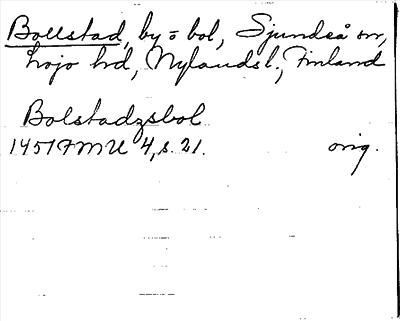 Bollstad, by = bol, Sjundeå sn,
Lojo hd, Nylandsl., Finland
Bolstadzsbol
1451 FMU 4, s. 21. orig.